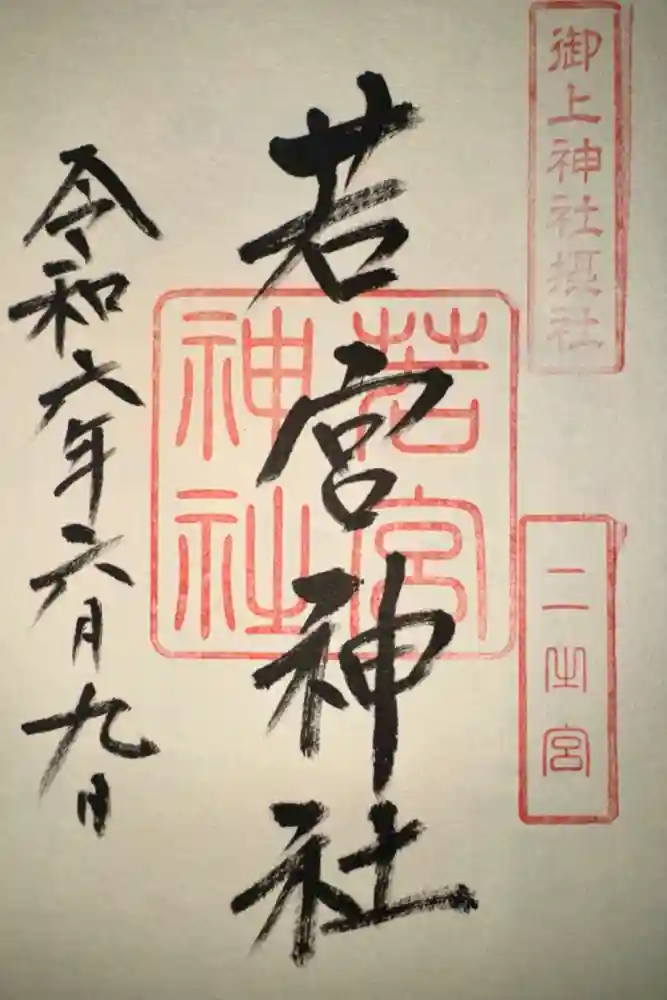 御上神社摂社
二之宮
若宮神社
若宮
神社
令和六年六月九日